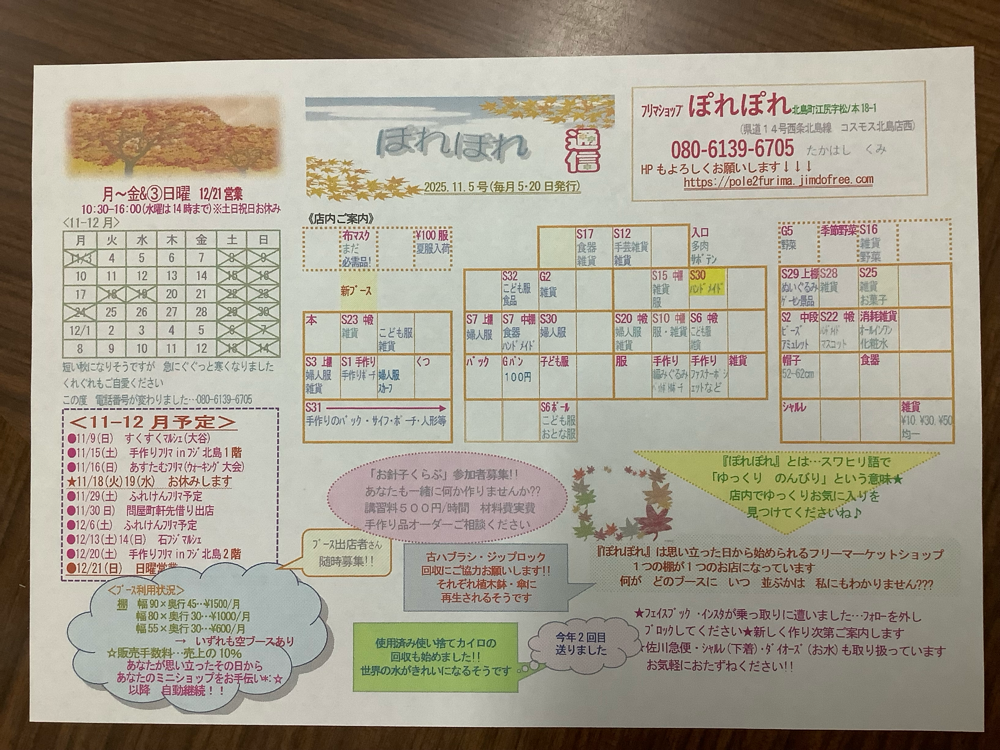 月～金&③日曜 12/21営業
10:30-16:00(水曜は14時まで)※土日祝日お休み
<11-12月>
月 火 水 木 金 土 日
11/3 4 5 6 7 8 9
10 11 12 13 14 15 16
17 18 19 20 21 22 23
24 25 26 27 28 29 30
12/1 2 3 4 5 6 7
8 9 10 11 12 13 14
短い秋になりそうですが 急にぐぐっと寒くなりました
くれぐれもご自愛ください
この度 電話番号が変わりました…080-6139-6705
＜11-12月予定＞
●11/9(日) すくすくマルシェ(大谷)
●11/15(土) 手作りフリマinフジ北島1階
●11/16(日) あすたむフリマ(ウォーキング大会)
★11/18(火)19(水) お休みします
●11/29(土) ふれけんフリマ予定
●11/30(日) 問屋町軒先借り出店
●12/6(土) ふれけんフリマ予定
●12/13(土)14(日) 石フジマルシェ
●12/20(土) 手作りフリマinフジ北島2階
●12/21(日) 日曜営業
<ブース利用状況>
棚 幅90×奥行45…¥1500/月
幅80×奥行30…¥1000/月
幅55×奥行30…¥600/月
→ いずれも空ブースあり
☆販売手数料…売上の10%
あなたが思い立ったその日から
あなたのミニショップをお手伝い*:☆
以降 自動継続！！
ぽれぽれ
通信
2025.11.5号(毎月5・20日発行)
フリマショップ ぽれぽれ 北島町江尻字松ノ本18-1
(県道14号西条北島線 コスモス北島店西)
080-6139-6705 たかはし くみ
HPもよろしくお願いします↓↓↓
https://pole2furima.jimdofree.com
《店内ご案内》
布マスク
まだ
必需品!
¥100服
夏服入荷
新ブース
本
S23 中段
雑貨
こども服
雑貨
S3 上棚
婦人服
雑貨
S1 手作り
手作りポーチ
婦人服
スカーフ
くつ
S31
手作りのバック・サイフ・ポーチ・人形等
S17
食器
雑貨
S12
手芸雑貨
雑貨
入口
多肉
サボテン
S32
こども服
食品
G2
雑貨
S15 中棚
雑貨
服
S30
ハンドメイド
S7 上棚
婦人服
S7 中棚
食器
ハンドメイド
S30
婦人服
S20 中段
婦人服
雑貨
S10 中棚
服・雑貨
S6 中段
こども服
雑貨
バック
Gパン
100円
子ども服
服
手作り
編みぐるみ
手作り
ファスナーポシェットなど
雑貨
S6ポール
こども服
おとな服
G5
野菜
季節野菜
S16
雑貨
野菜
S29 上棚
ぬいぐるみ
ゲーセン景品
S28
雑貨
S25
雑貨
お菓子
S2 中段
ビーズ
アミュレット
S22 中段
マスコット
消耗雑貨
オールインワン
化粧水
帽子
52-62cm
食器
シャルレ
雑貨
¥10.¥30.¥50
均一
「お針子くらぶ」参加者募集!!
あなたも一緒に何か作りませんか??
講習料500円/時間 材料費実費
手作り品オーダーご相談ください
『ぽれぽれ』とは…スワヒリ語で
「ゆっくり のんびり」という意味★
店内でゆっくりお気に入りを
見つけてくださいね♪
ブース出店者さん
随時募集!!
古ハブラシ・ジップロック
回収にご協力お願いします!!
それぞれ植木鉢・傘に
再生されるそうです
『ぽれぽれ』は思い立った日から始められるフリーマーケットショップ
1つの棚が1つのお店になっています
何が どのブースに いつ 並ぶかは 私にもわかりません???
使用済み使い捨てカイロの
回収も始めました!!
世界の水がきれいになるそうです
今年2回目
送りました
★フェイスブック・インスタが乗っ取りに遭いました…フォローを外し
ブロックしてください★新しく作り次第ご案内します
★佐川急便・シャルレ(下着)・ダイオーズ(お水)も取り扱っています
お気軽におたずねください!!